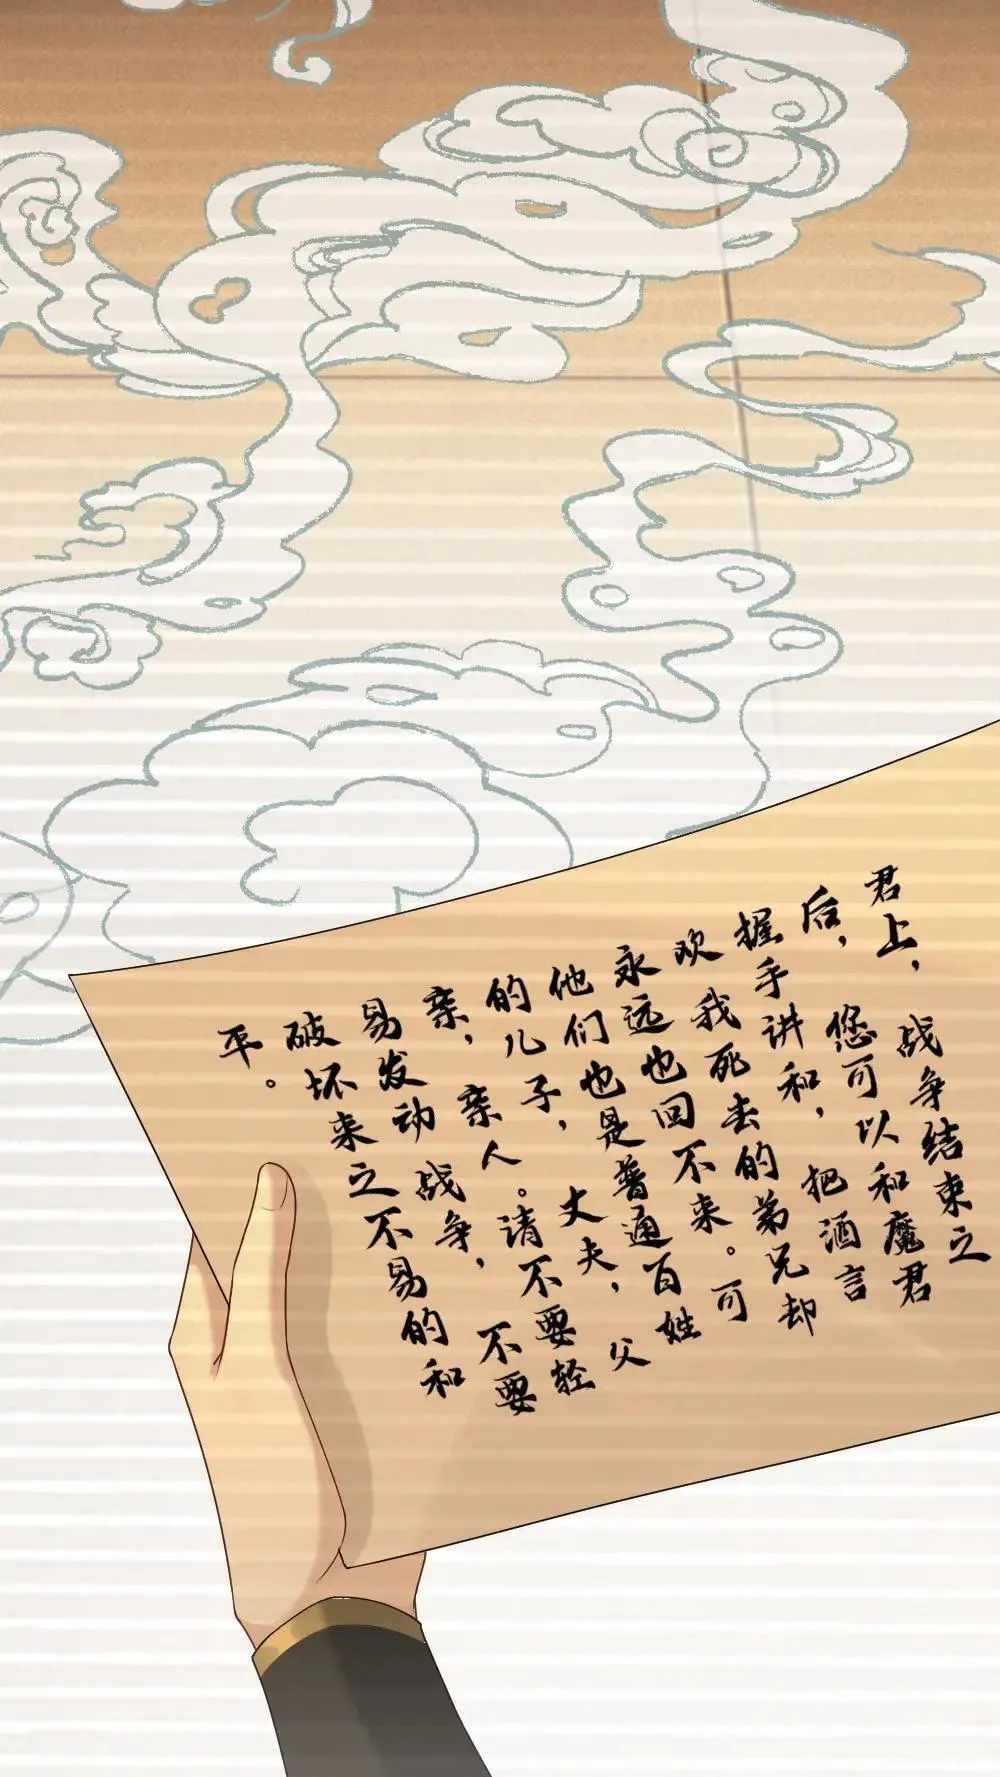 君上，战争结束之
后，您可以和魔君
握手讲和，把酒言
欢我死去的弟兄却
永远也回不来。可
他们也是普通百姓
的儿子，丈夫，父
亲，亲人。请不要轻
易发动战争，不要
破坏来之不易的和
平。